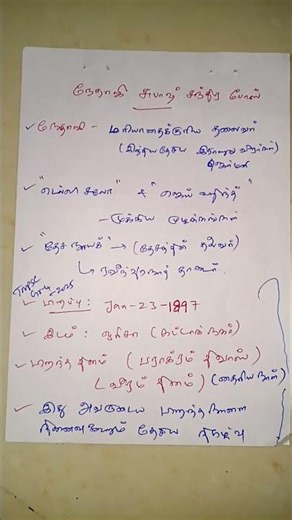 நேதாஜி சுபாஷ் சந்திர போஸ்
✓ நேதாஜி - மரியாதைக்குரிய தலைவர்
(இந்திய தேசிய இராணுவ வீரர்கள்)
ஜெர்மனி
✓ "டெல்லி சலோ" & "ஜெய்ஹிந்த்"
- முக்கிய முழக்கங்கள்
✓ "தேச நாயக்" → (தேசத்தின் தலைவர்)
↳ ரவீந்திரநாத் தாகூர்.
✓ பிறப்பு : Jan-23-1897
✓ இடம் : ஒரிசா (கட்டாக் நகர்)
✓ பிறந்த தினம் (பராக்ரம் திவாஸ்)
(வீரம் தினம்) (தைரிய நாள்)
✓ இது அவருடைய பிறந்த நாளை
நினைவுகூறும் தேசிய நிகழ்வு